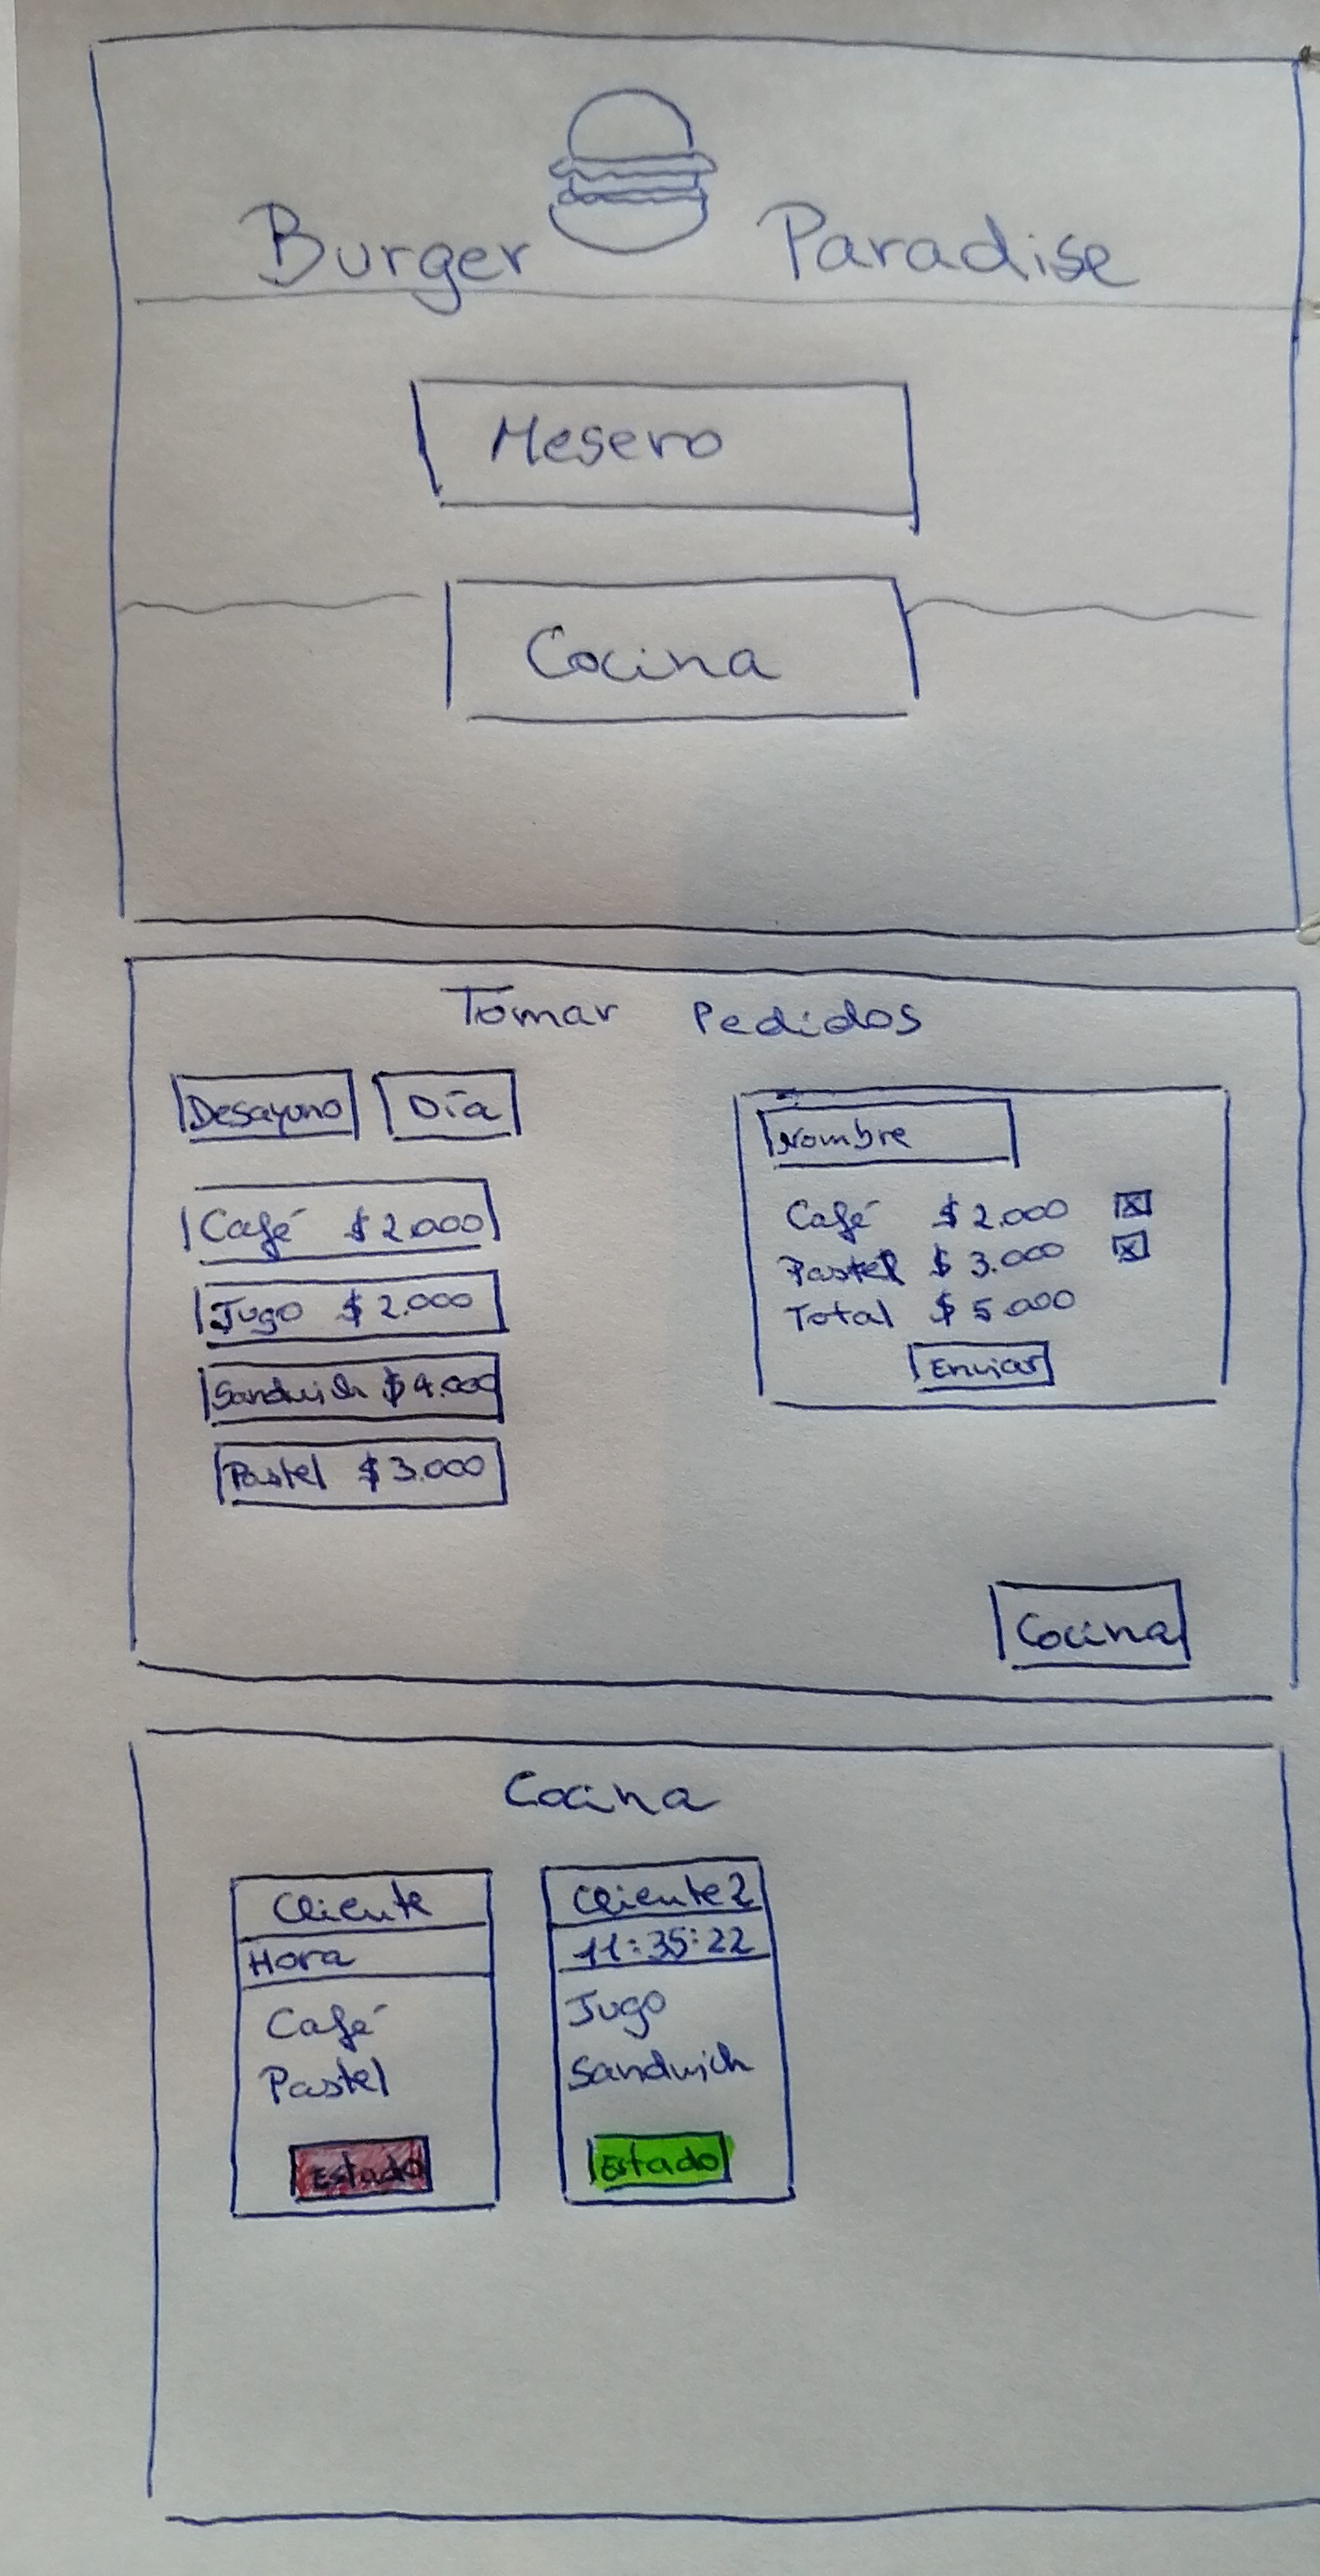 Burger Paradise
Mesero
Cocina
Tomar Pedidos
Desayuno Día
Café $2.000
Jugo $2.000
Sandwich $4.000
Pastel $3.000
Nombre
Café $2.000 x
Pastel $3.000 x
Total $5.000
Enviar
Cocina
Cocina
Cliente
Hora
Café
Pastel
Estado
Cliente 2
11:35:22
Jugo
Sandwich
Estado